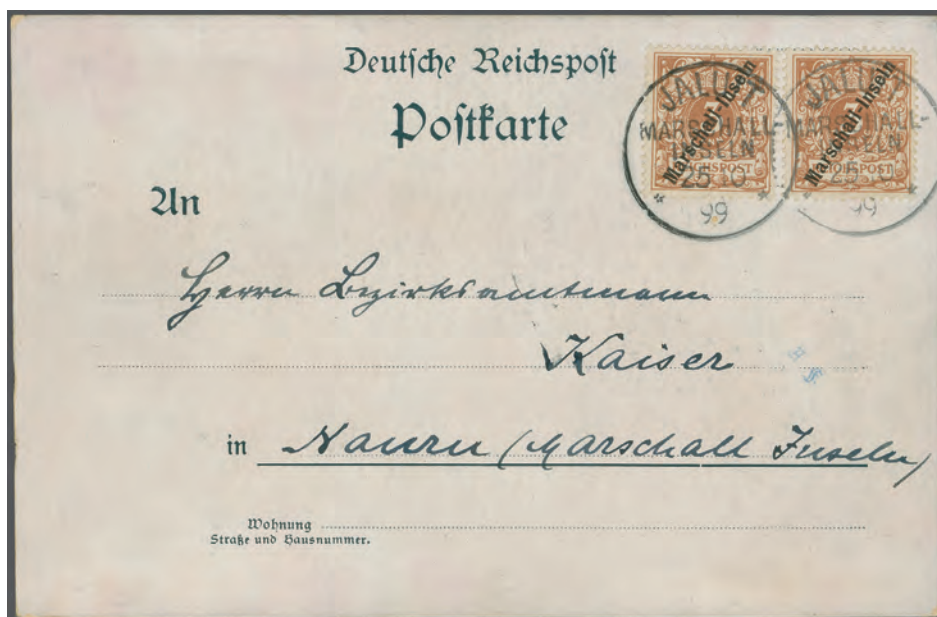 Deutsche Reichspost
Postkarte
Marschall-Inseln
REICHSPOST
Marschall-Inseln
REICHSPOST
JALUIT
MARSCHALL-
INSELN
25
99
JALUIT
MARSCHALL-
INSELN
25
99
An
Herrn Bezirksamtmann
Kaiser
in Nauru (Marschall Inseln)
Wohnung
Straße und Hausnummer.